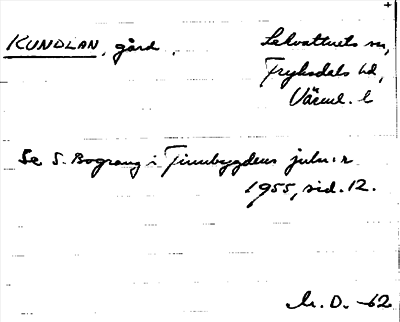 KUNDLAN, gård.
Lekvattnets sn,
Fryksdals hd,
Värml. l
Se S. Bograng i Finnbygdens julnr
1955, sid. 12.
M. D. -62